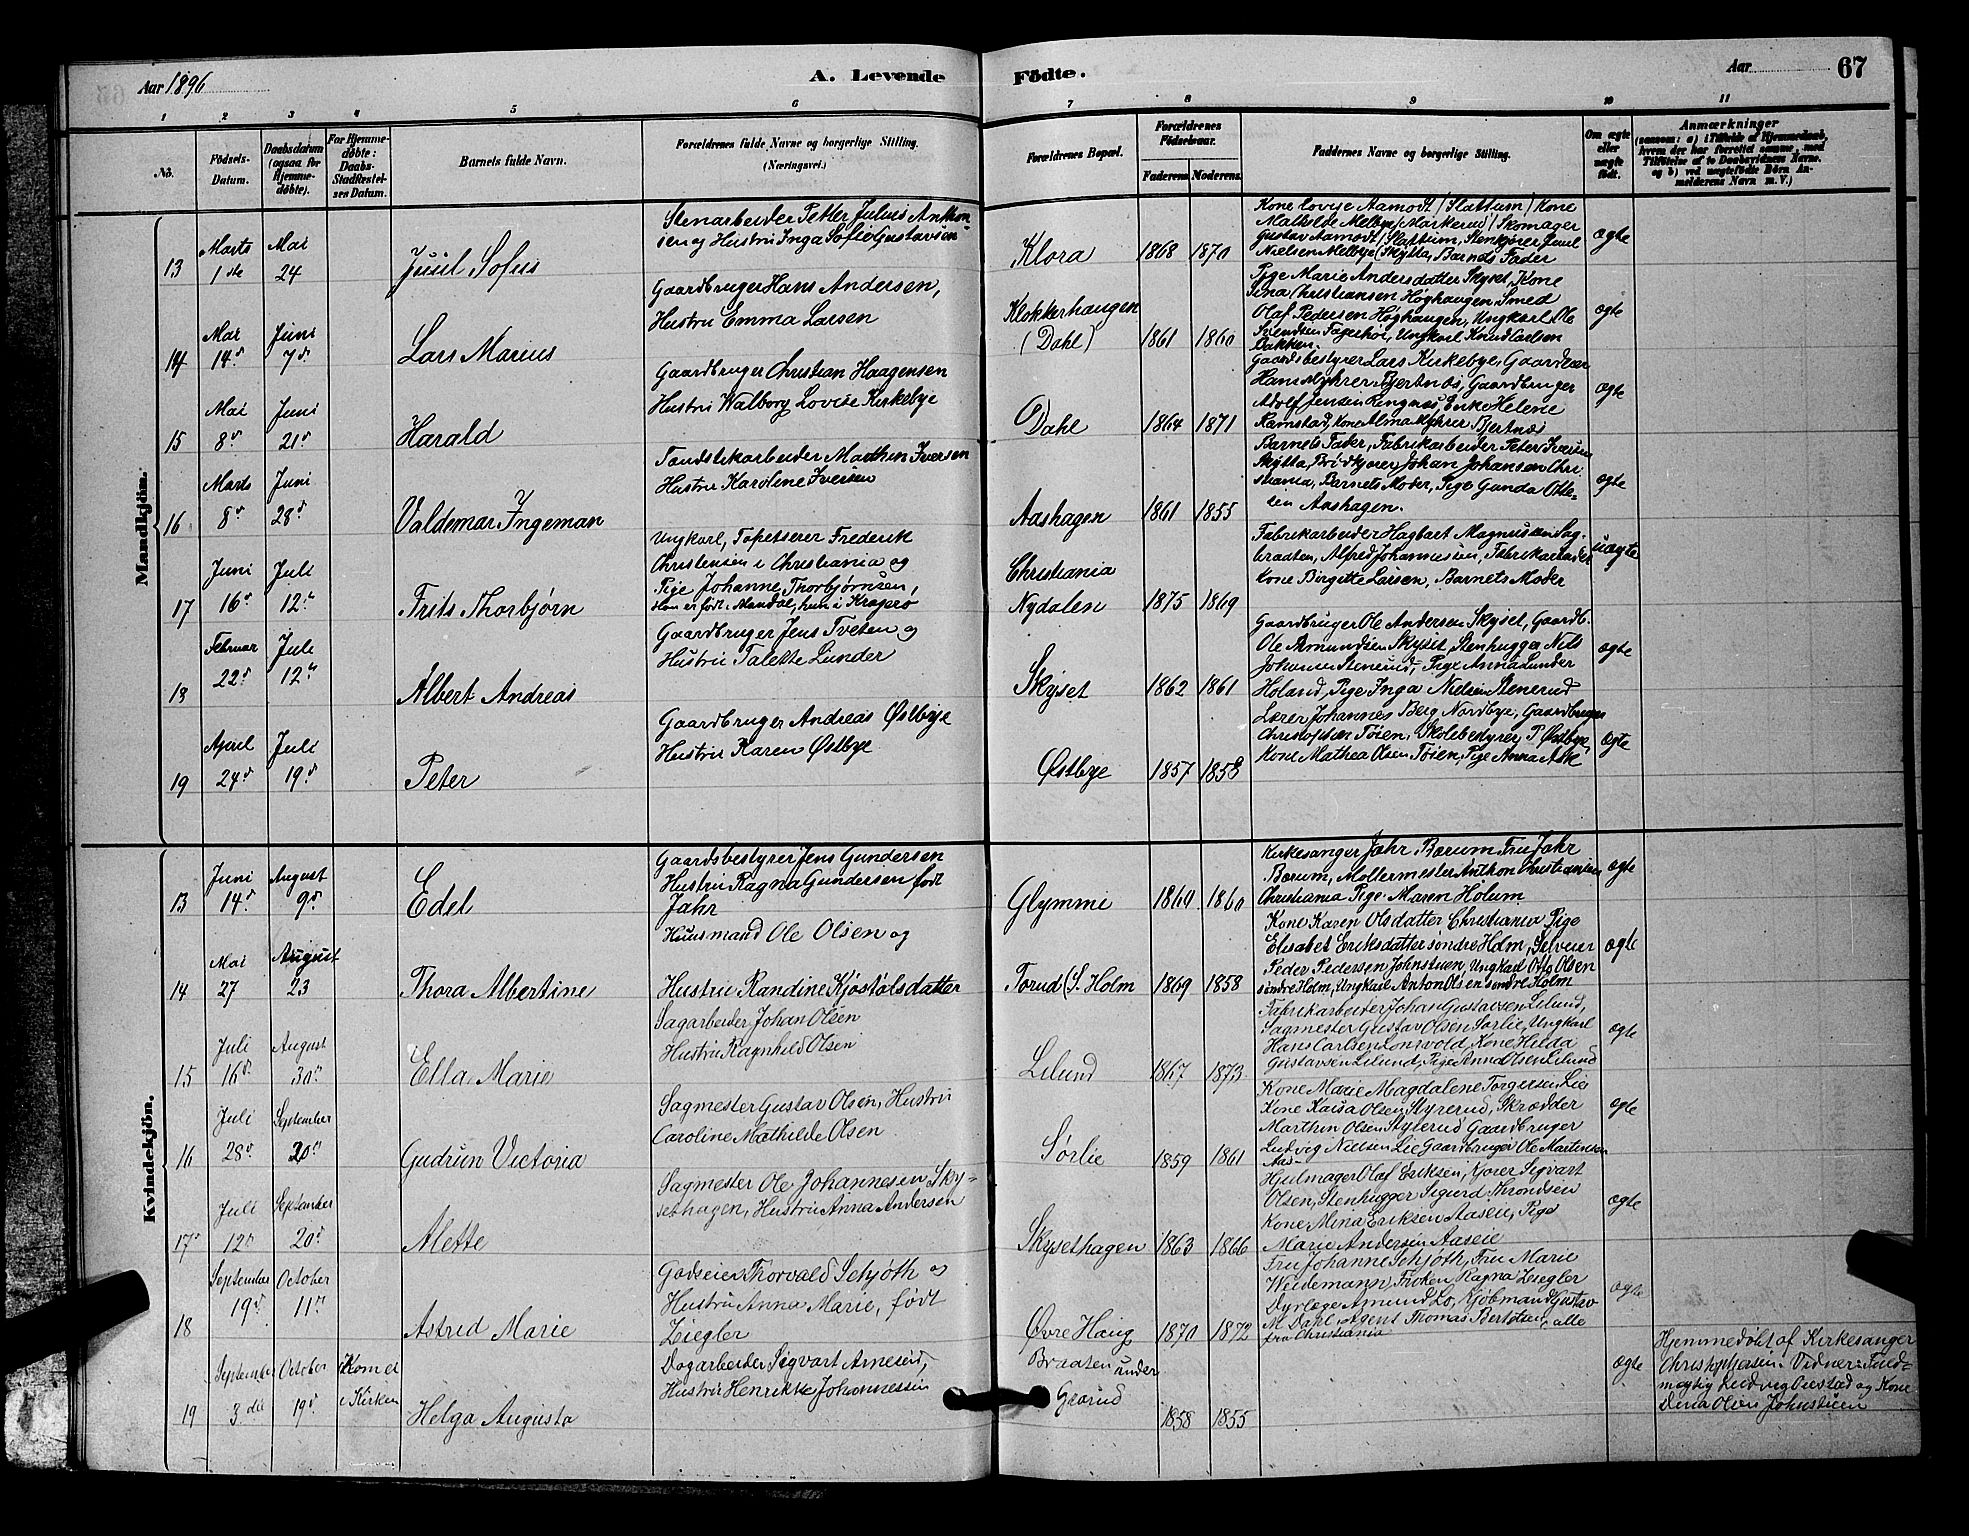 Aar 1896
A. Levende
Fødte.
Aar
67
1 2 3 4 5 6 7 8 9 10 11
No.
Fødsels-Datum.
Daabsdatum (ogsaa for Hjemmedøbte).
For Hjemmedøbte: Daabs Stadfæstelses Datum.
Barnets fulde Navn.
Forældrenes fulde Navne og borgerlige Stilling. (Næringsvei.)
Forældrenes Bopæl.
Forældrenes Fødselsaar.
Faderens. Moderens.
Faddernes Navne og borgerlige Stilling.
Om ægte eller uægte født.
Anmærkninger
(saasom: a) i Tilfælde af Hjemmedaab,
hvem der har forrettet samme, med
Tilføielse af to Daabsvidners Navne.
og b) ved uægtefødte Børn Anmelderens Navn m.V.)
Mandkjön.
13 Marts 1ste Mai 24 Juul Sofus
Stenarbeider Petter Julius Anthonsen og Hustru Inga Sofie Gustavsen
Klora 1868 1870
Kone Lovise Aamodt / Slattum / Kone
Mathilde Melbye / Markerud / Skomager
Gustav Aamodt / Slattum, Stenkjører Juul
Nielsen Melbye (Skytta, Barnets Fader
ægte
14 Mai 14d Juni 7d Lars Marius
Gaardbruger Hans Andersen,
Hustru Emma Larsen
Klokkerhaugen
(Dahl) 1861 1860
Pige Marie Andersdatter Skyset, Kone
Sina Christiansen Høghaugen, Smed
Olaf Pedersen Høghaugen, Ungkarl Ole
Svendsen Fagerhøi, Ungkarl Knud Carlsen
Bakken.
ægte
15 Mai 8d Juni 21d Harald
Gaardbruger Christian Haagensen
Hustru Walborg Lovise Kirkebye
Dahl 1864 1871
Gaardsbestyrer Lars Kirkebye, Gaardbr
Hans Myhrer Bjertnæs, Gaardbruger
Adolf Jensen Ringnæs, Enke Helene
Ramstad, Kone Alma Myhrer Bjertnæs
ægte
16 Marts 8d Juni 28d Valdemar Ingeman
Tandstikarbeider Mathin Iversen
Hustru Karoline Iversen
Aashagen 1861 1855
Barnets Fader, Fabrikarbeider Peter Iversen
Skytta, Brødkjører Johan Johansen Christiania, Barnets Moder, Pige Gunda Ottesen Aashagen.
ægte
17 Juni 16d Juli 12te Frits Thorbjørn
Ungkarl, Tapetserer Frederik
Christensen i Christiania og
Pige Johanne Thorbjørnsen,
Han er født i Mandal, hun i Kragerø
Christiania
Nydalen 1875 1869
Fabrikarbeider Hagbart Magnussen Sagbraaten, Alfred Johannessen, Fabrikarbeider
Kone Birgitte Larsen, Barnets Moder
uægte
18 Februar 22d Juli 12te Albert Andreas
Gaardbruger Jens Tveten og
Hustru Talette Lunder
Skyset 1862 1861
Gaardbruger Ole Andersen Skyset, Gaardb.
Ole Asmundsen Skyset, Stenhugger Nils
Johansen Stenerud, Pige Anna Lunder
Holand, Pige Inga Nielsen Stenerud
ægte
19 April 24d Juli 19d Peter
Gaardbruger Andreas Østbye
Hustru Karen Østbye
Østbye 1857 1858
Lærer Johannes Berg Nordbye, Gaardbruger
Christoffer Tøien, Skolebestyrer P. Østbye,
Kone Mathea Olsen Tøien, Pige Anna Ask
ægte
Kvindekjön.
13 Juni 14d August 9d Edel
Gaardsbestyrer Jens Gundersen
Hustru Ragna Gundersen født
Jahr
Glymmi 1860 1860
Kirkesanger Jahr Bærum, Fru Jahr
Bærum, Møllermester Anthon Christiansen
Christiania Pige Maren Holum
ægte
14 Mai 27 August 23 Thora Albertine
Huusmand Ole Olsen og
Hustru Randine Kjøstølsdatter
Torud (S. Holm 1869 1858
Kone Karen Olsdatter Christiania Pige
Elisabet Eriksdatter søndre Holm, Selveier
Peder Pedersen Johnstuen, Ungkarl Otto Olsen
søndre Holm, Ungkarl Anton Olsen søndre Holm
ægte
15 Juli 16d August 30te Ella Marie
Sagarbeider Johan Olsen
Hustru Ragnhild Olsen
Lilund 1867 1873
Fabrikarbeider Johan Gustavsen Lilund,
Sagmester Gustav Olsen Sørlie, Ungkarl
Hans Carlsen Lonsvold, Kone Hilda
Gustavsen Lilund, Pige Anna Olsen Lilund
ægte
16 Juli 28d September 20te Gudrun Victoria
Sagmester Gustav Olsen, Hustru
Caroline Mathilde Olsen
Sørlie 1859 1861
Kone Marie Magdalene Torgersen Lie
Kone Kaisa Olsen Styrerud, Skræder
Marthin Olsen Styrerud Gaardbruger
Ludvig Nielsen Lie Gaardbruger Ole Martinsen
Aas
ægte
17 Juli 12d September 20d Alette
Sagmester Ole Johannesen Skysethagen, Hustru Anna Andersen
Skysethagen 1863 1866
Hjulmager Olaf Eriksen, Kjører Sigvart
Olsen, Stenhugger Sigurd Throndsen
Kone Mina Eriksen Aasen, Pige
Marie Andersen Aaseie
ægte
18 September 19d October 11te Astrid Marie
Godseier Thorvald Schjøth og
Hustru Anna Marie, født
Ziegler
Øvre Haug 1870 1872
Fru Johanne Schjøth, Fru Marie
Weidemann, Frøken Ragna Ziegler
Dyrlæge Amund Lo, Kjøbmand Gustav
M. Dahl, Agent Thomas Bertelsen, alle
fra Christiania
ægte
19 September 3die October 19d Komel i Kirken Helga Augusta
Dagarbeider Sigvart Arnesen,
Hustru Henrikke Johannessen
Braaten under
Grorud 1858 1855
ægte
Hjemmedøbt af Kirkesanger
Christophersen. Vidner: Fuldmægtig Ludvig Oustad og Kone
Dina Olsen Johnstuen